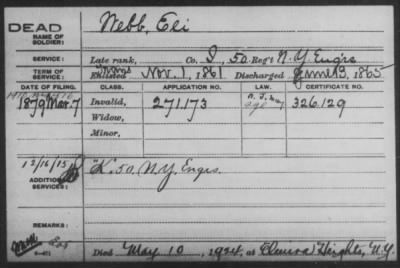 DEAD
NAME OF SOLDIER:
Webb, Eli
SERVICE:
Late rank, Co. I, 50 Reg't N.Y. Engrs
TERM OF SERVICE:
Enlisted Nov. 1, 1861 Discharged June 13, 1865
DATE OF FILING. CLASS. APPLICATION NO. LAW. CERTIFICATE NO.
1879 Mar. 7 Invalid, 271.173 326.129
Widow,
Minor,
12/16/15
ADDITIONAL SERVICES:
"K. 50. N.Y. Engrs.
REMARKS:
Died May 10, 1924, at Elmira Heights, N.Y.